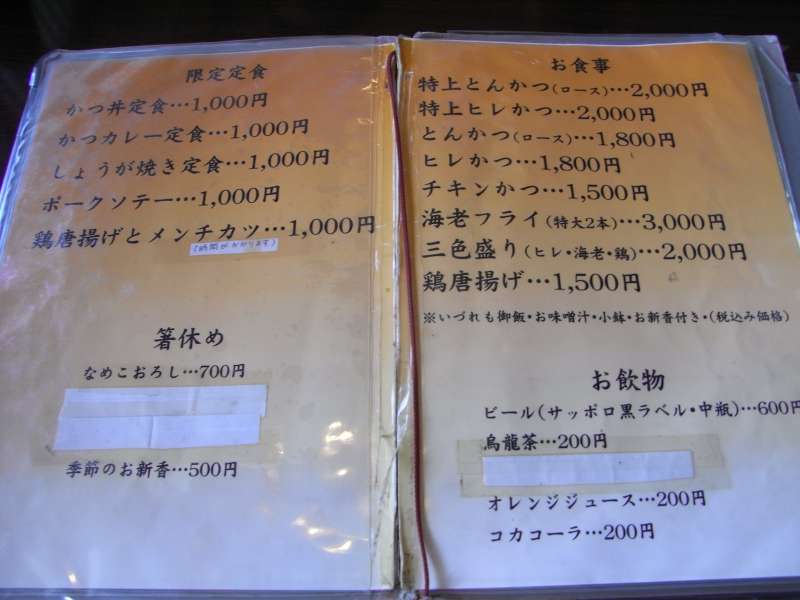 限定定食
かつ丼定食…1,000円
かつカレー定食…1,000円
しょうが焼き定食…1,000円
ポークソテー…1,000円
鶏唐揚げとメンチカツ…1,000円
(時間がかかります)
箸休め
なめこおろし…700円
季節のお新香…500円
お食事
特上とんかつ(ロース)…2,000円
特上ヒレかつ…2,000円
とんかつ(ロース)…1,800円
ヒレかつ…1,800円
チキンかつ…1,500円
海老フライ(特大2本)…3,000円
三色盛り(ヒレ・海老・鶏)…2,000円
鶏唐揚げ…1,500円
※いづれも御飯・お味噌汁・小鉢・お新香付き・(税込み価格)
お飲物
ビール(サッポロ黒ラベル・中瓶)…600円
烏龍茶…200円
オレンジジュース…200円
コカコーラ…200円